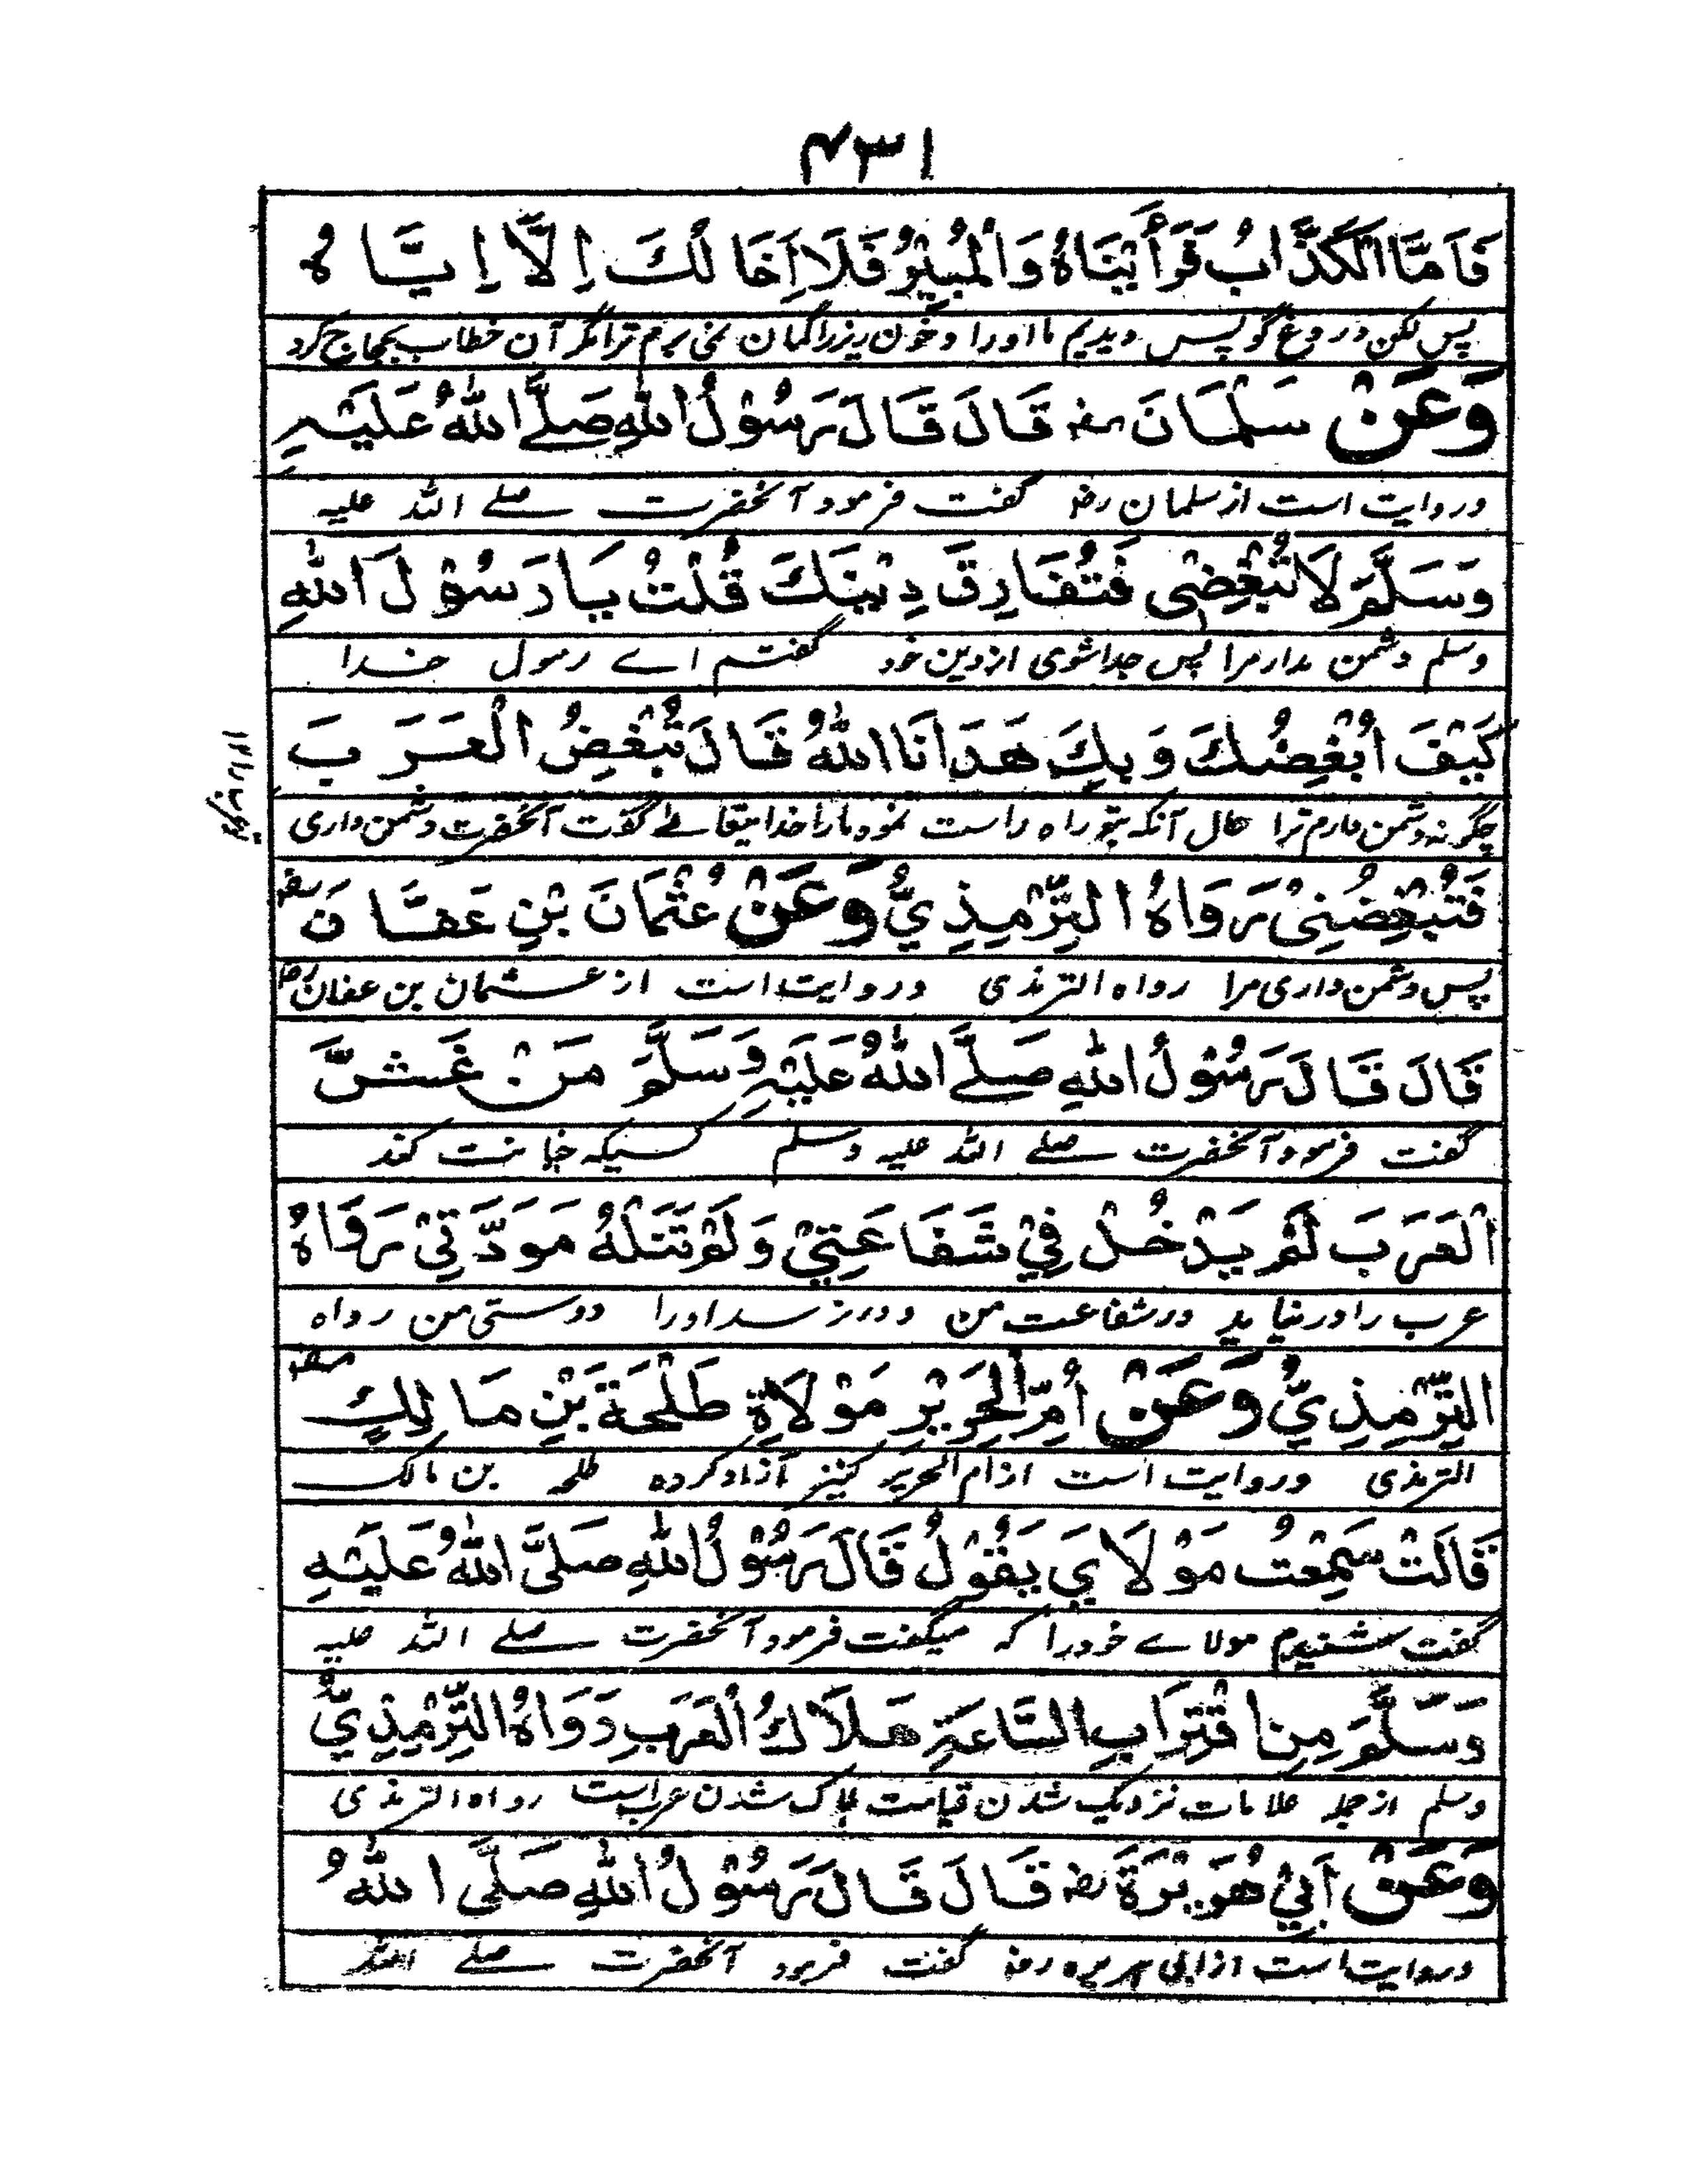 ۴۳۱
فَاَمَّا الْكَذَّابُ فَرَأَيْنَاهُ وَالْمُبِيْرُ فَلَا اَخَالُكَ اِلَّا اِيَّاهُ
پس لکن دروغ گو پس دیدیم ما اورا و خون ریز را گمان نمی برم ترا مگر آن خطاب بحجاج کرد
وَعَنْ سَلْمَانَ رضہ قَالَ قَالَ رَسُوْلُ اللّٰهِ صَلَّے اللّٰهُ عَلَيْهِ
و روایت است از سلمان رضہ گفت فرمود آنحضرت صلے اللہ علیہ
وَسَلَّمَ لَا تُبْغِضْنِی فَتُفَارِقَ دِيْنَكَ قُلْتُ يَا رَسُوْلَ اللّٰهِ
وسلم دشمن مدار مرا پس جدا شوی از دین خود گفتم اے رسول خدا
كَيْفَ اُبْغِضُكَ وَبِكَ هَدَانَا اللّٰهُ قَالَ تُبْغِضُ الْعَرَبَ
چگونہ دشمن دارم ترا حال آنکہ بتو راہ راست نمود مارا خدایتعالے گفت آنحضرت دشمن داری
فَتُبْغِضُنِیْ رَوَاهُ التِّرْمِذِيُّ وَعَنْ عُثْمَانَ بْنِ عَفَّانَ رضہ
پس دشمن داری مرا رواہ الترمذی و روایت است از عثمان بن عفان رض
قَالَ قَالَ رَسُوْلُ اللّٰهِ صَلَّے اللّٰهُ عَلَيْهِ وَسَلَّمَ مَنْ غَشَّ
گفت فرمود آنحضرت صلے اللہ علیہ وسلم کسیکہ خیانت کند
الْعَرَبَ لَمْ يَدْخُلْ فِيْ شَفَاعَتِيْ وَلَمْ تَنَلْهُ مَوَدَّتِيْ رَوَاهُ
عرب را در نیاید در شفاعت من و در نرسد اورا دوستی من رواہ
التِّرْمِذِيُّ وَعَنْ اُمِّ الْحَرِيْرِ مَوْلَاةِ طَلْحَةَ بْنِ مَالِكٍ رضہ
الترمذی و روایت است از ام الحریر کنیز آزاد کردہ طلحہ بن مالک
قَالَتْ سَمِعْتُ مَوْلَايَ يَقُوْلُ قَالَ رَسُوْلُ اللّٰهِ صَلَّى اللّٰهُ عَلَيْهِ
گفت شنیدم مولاے خود را کہ میگفت فرمود آنحضرت صلے اللہ علیہ
وَسَلَّمَ مِنِ اقْتِرَابِ السَّاعَةِ هَلَاكُ الْعَرَبِ رَوَاهُ التِّرْمِذِيُّ
وسلم از جملہ علامات نزدیک شدن قیامت ہلاک شدن عرب است رواہ الترمذی
وَعَنْ اَبِيْ هُرَيْرَةَ رضہ قَالَ قَالَ رَسُوْلُ اللّٰهِ صَلَّى اللّٰهُ
و روایت است از ابی ہریرہ رضہ گفت فرمود آنحضرت صلے اللہ